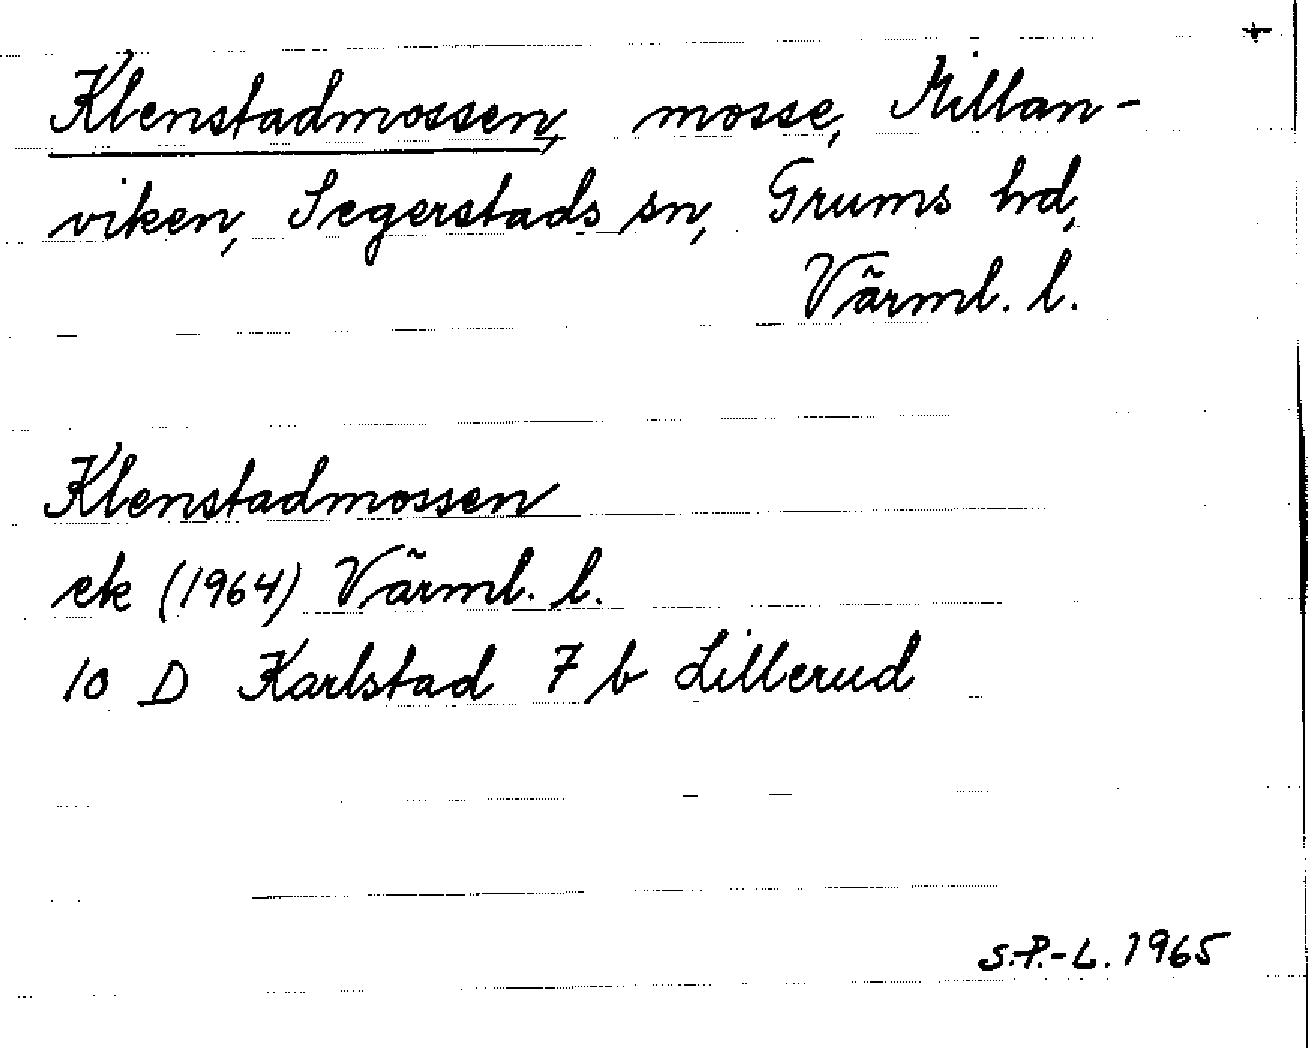 +
Klenstadmossen, mosse, Millan-
viken, Segerstads sn, Grums hd,
Värml. l.
Klenstadmossen
ek (1964) Värml. l.
10 D Karlstad 7 b Lillerud
S.P.-L. 1965